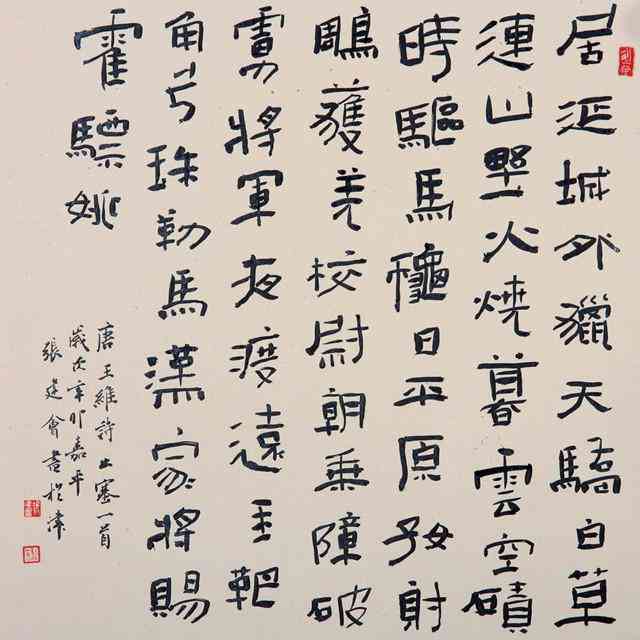 居延城外獵天驕白草
連山墅火燒暮雲空磧
時驅馬龝日平原好射
鵰護羌校尉朝乘障破
虜將軍夜渡遠玉靶
角弓珠勒馬漢家將賜
霍驃姚
唐王維詩出塞一首
歲次辛卯嘉平
張建會書於津